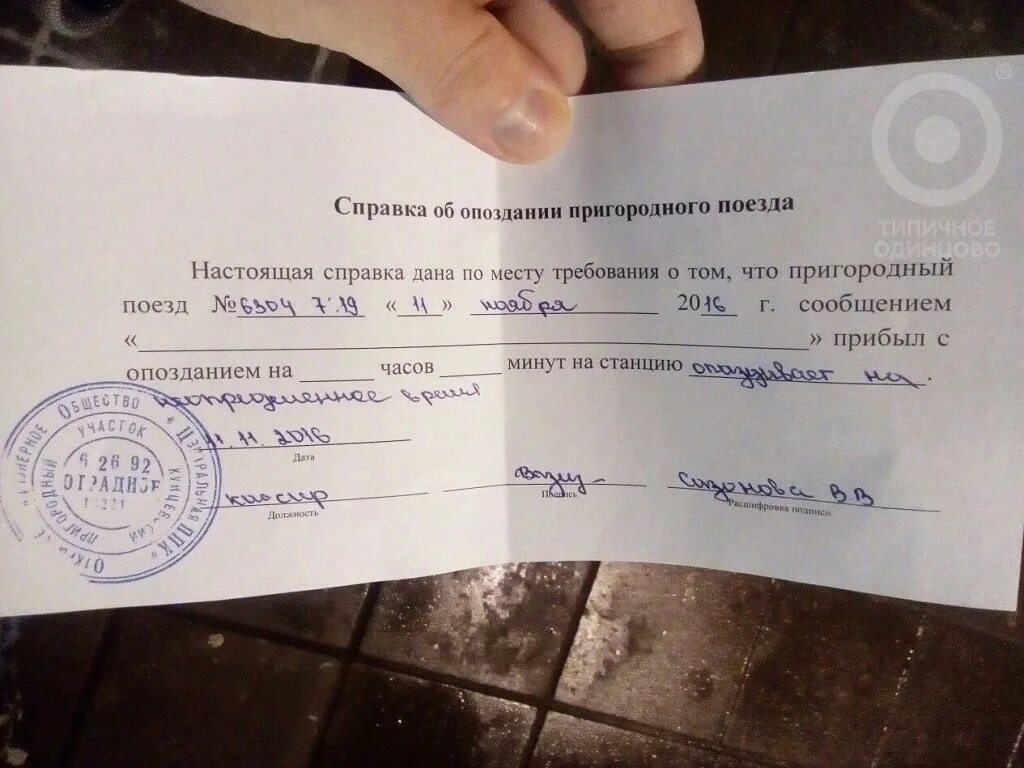 ТИПИЧНОЕ
ОДИНЦОВО
Справка об опоздании пригородного поезда
Настоящая справка дана по месту требования о том, что пригородный
поезд №6304 7:19 «11» ноября 2016 г. сообщением
«» прибыл с
опозданием на часов минут на станцию опаздывает на.
неопределенное время
11.11.2016
Дата
кассир Сазонова В В
Должность Подпись Расшифровка подписи
ОТКРЫТОЕ АКЦИОНЕРНОЕ ОБЩЕСТВО "ЦЕНТРАЛЬНАЯ ППК"
ПРИГОРОДНЫЙ КУНЦЕВСКИЙ
УЧАСТОК
6 26 92
ОТРАДНОЕ